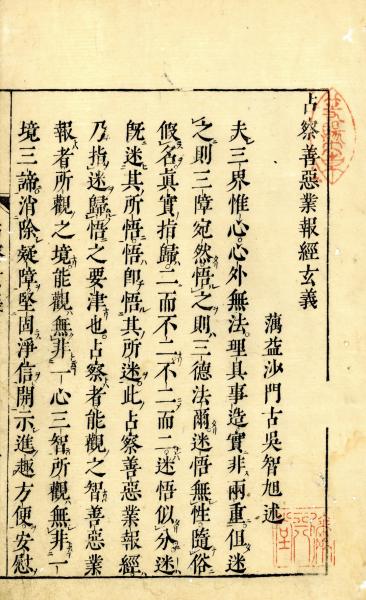 占察善惡業報經玄義
蕅益沙門古吳智旭述
夫三界惟心心外無法理具事造實非兩重但迷
之則三障宛然悟之則三德法爾迷悟無性隨俗
假名眞實指歸二而不二不二而二迷悟似分迷
旣迷其所悟悟卽悟其所迷此占察善惡業報經
乃指迷歸悟之要津也占察者能觀之智善惡業
報者所觀之境能觀無非一心三智所觀無非一
境三諦消除疑障堅固淨信開示進趣方便安慰